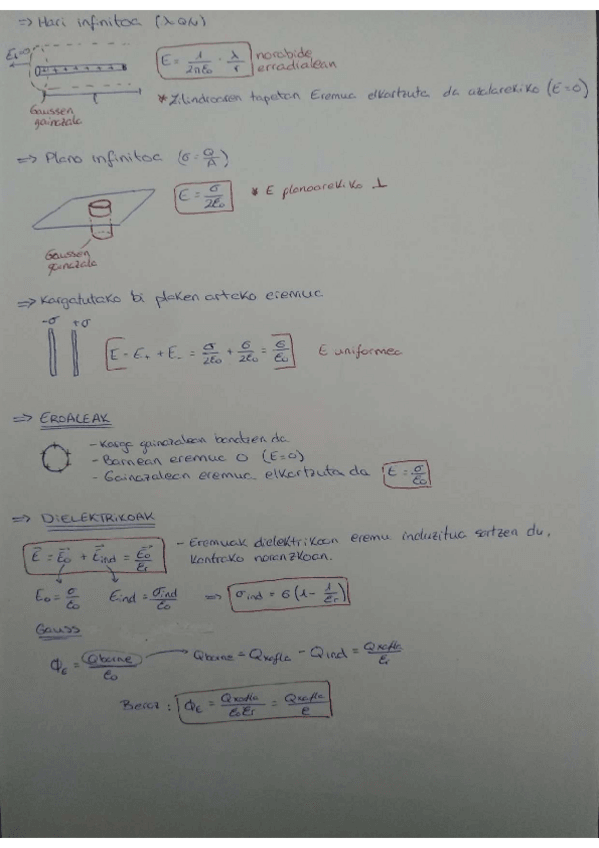 => Hari infinitoa (λ = Q/L)
E=0
E = 1/2πε₀ · λ/r norabide erradialean
Gaussen gainazala
* Zilindroaren tapetan Eremua elkartzuta da azalarekiko (E=0)
=> Plano infinitoa (σ = Q/A)
E = σ/2ε₀ * E planoarekiko ⊥
Gaussen gainazala
=> Kargatutako bi plaken arteko eremua
-σ +σ
E = E₊ + E₋ = σ/2ε₀ + σ/2ε₀ = σ/ε₀ E uniformea
=> EROALEAK
- Karga gainazalean banatzen da
- Barnean eremua 0 (E=0)
- Gainazalean eremua elkartzuta da E = σ/ε₀
=> DIELEKTRIKOAK
E⃗ = E⃗₀ + E⃗ind = E⃗₀/εr - Eremuak dielektrikoan eremu induzitua sortzen du,
kontrako noranzkoan.
E₀ = σ/ε₀ Eind = σind/ε₀ => σind = σ(1 - 1/εr)
Gauss
ΦE = Qbarne/ε₀ Qbarne = Qxafla - Qind = Qxafla/εr
Beraz : ΦE = Qxafla/ε₀εr = Qxafla/ε